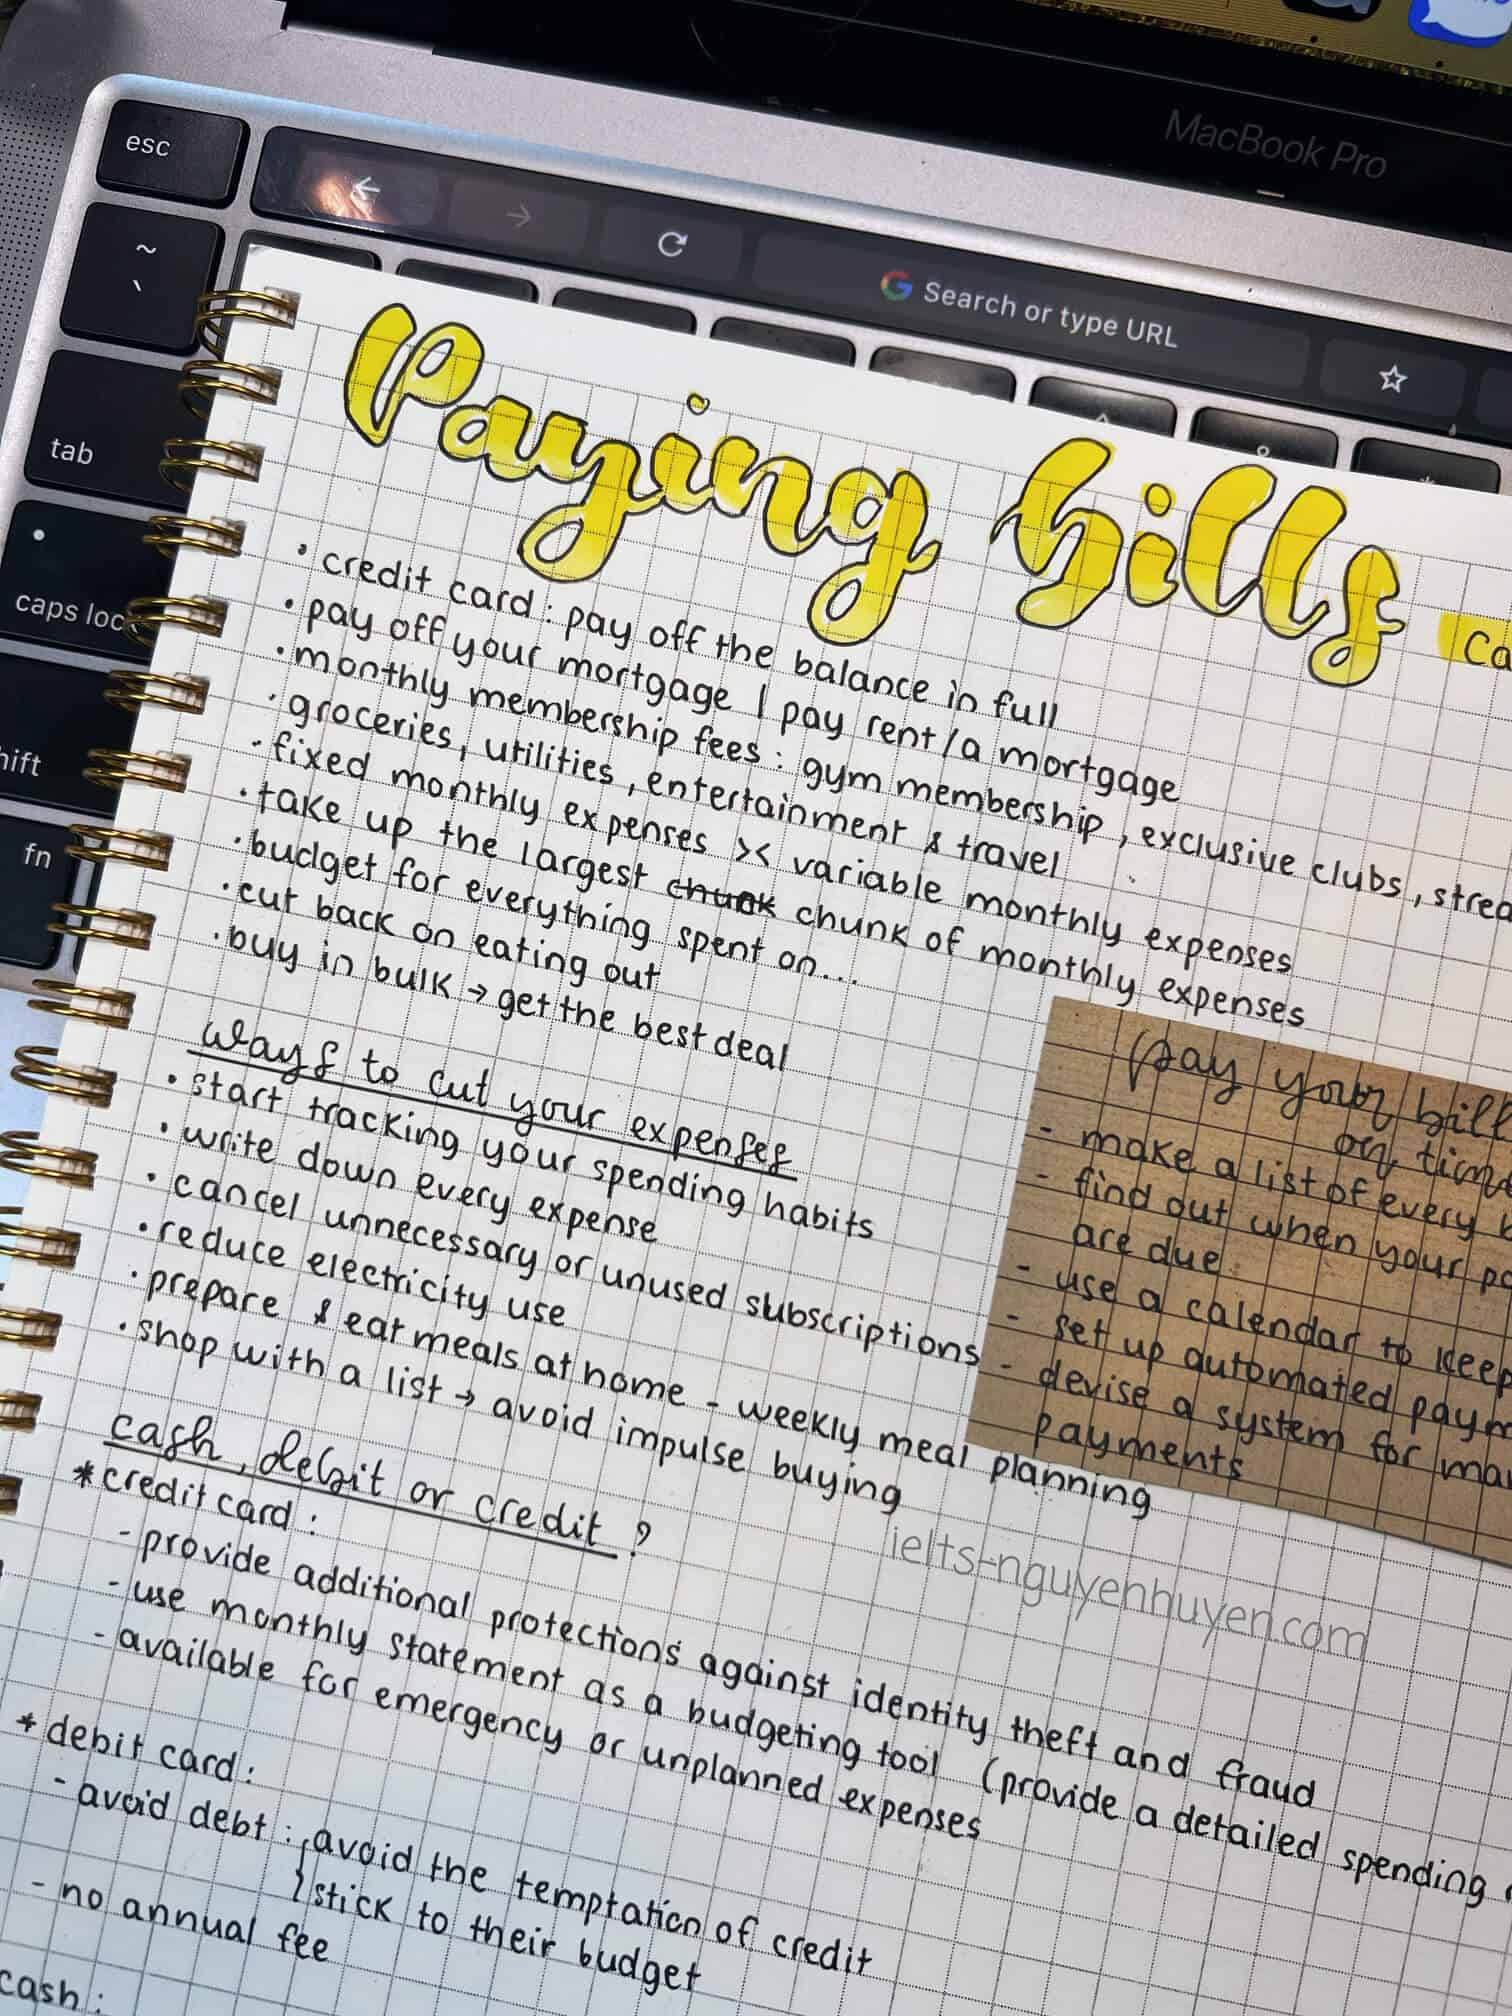 MacBook Pro
esc
Search or type URL
~
`
tab
caps loc
hift
fn
Paying bills
Ca
• credit card: pay off the balance in full
• pay off your mortgage | pay rent/a mortgage
• monthly membership fees: gym membership, exclusive clubs, strea
• groceries, utilities, entertainment & travel
• fixed monthly expenses >< variable monthly expenses
• take up the largest chunk chunk of monthly expenses
• budget for everything spent on...
• cut back on eating out
• buy in bulk → get the best deal
Ways to cut your expenses
• start tracking your spending habits
• write down every expense
• cancel unnecessary or unused subscriptions
• reduce electricity use
• prepare & eat meals at home - weekly meal planning
• shop with a list → avoid impulse buying
pay your bill
on time
- make a list of every b
- find out when your pa
are due
- use a calendar to keep
- set up automated paym
- devise a system for ma
payments
ielts-nguyenhuyen.com
cash, debit or credit?
*credit card:
- provide additional protections against identity theft and fraud
- use monthly statement as a budgeting tool (provide a detailed spending
- available for emergency or unplanned expenses
* debit card:
- avoid debt: avoid the temptation of credit
stick to their budget
- no annual fee
cash: